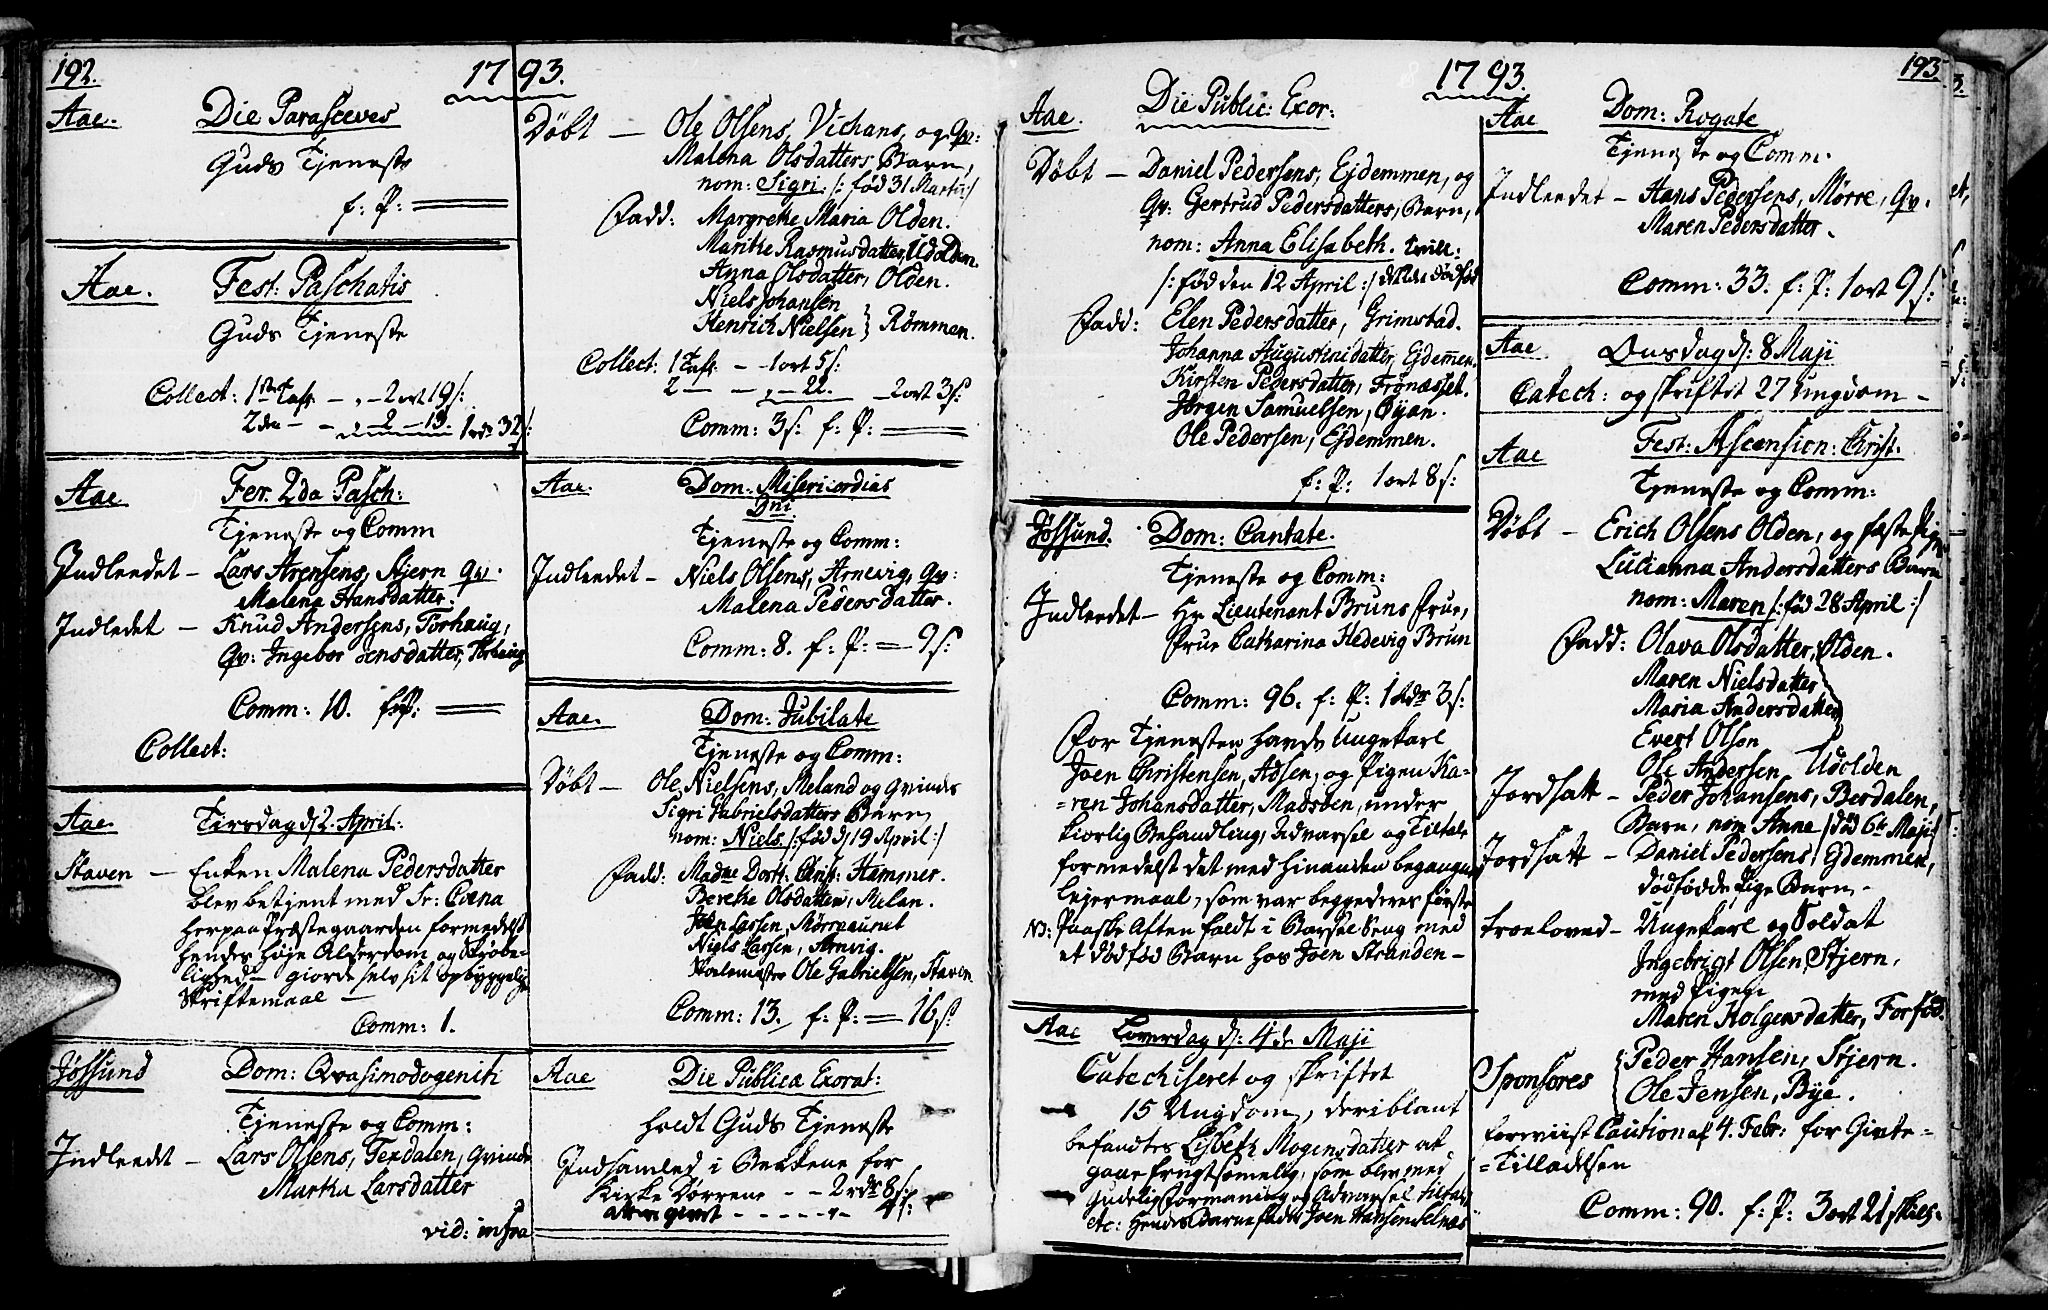 192.
1793.
Aae. Die Parasceves
Guds Tjeneste
f: P:
Aae. Fest: Paschatis
Guds Tjeneste
Collect: 1ste Tafl - „ - 2 ort 19 s:
2den - - 2 - 13. 1 rdr 32 s:
Aae Fer. 2da Pasch:
Tjeneste og Comm
Indleedet - Lars Arensens, Stjern Qv.
Malena Hansdatter.
Indledet - Knud Andersens, Torhaug,
Qv: Ingebor Jensdatter, Torhaug
Comm: 10. f: P:
Collect:
Aae. Tirsdag d. 2. April:
Staven - Enken Malena Pedersdatter
blev betjent med Sr: Coena
her paa Præstegaarden formedelst
hendes høje Alderdom og Skrøbe-
lighed - giorde selv sit opbyggelige
Skriftemaal -
Comm: 1.
Jøssund Dom: Qvasimodogeniti
Tjeneste og Comm:
Indleedet - Lars Olsens, Terdalen, Qvinde
Martha Larsdatter
vid: infra
Døbt - Ole Olsens, Vichans, og Qv:
Malena Olsdatters Barn,
nom: Sigri. /: fød 31 Martii :/
Fadd: Margrethe Maria Olden.
Marithe Rasmusdatter, Udolden.
Anna Olsdatter, Olden.
Niels Johansen
Henrich Nielsen } Rømmen.
Collect: 1 Tafl. - - 1 ort 5 s:
2 - - „ - 22. - 2 ort 3 s:
Comm: 3 s: f: P:
Aae. Dom: Misericordias
Dni.
Tjeneste og Comm:
Indleedet - Niels Olsens, Arnevig, Qv:
Malena Pedersdatter.
Comm: 8. f: P: = 9 s:
Aae. Dom: Jubilate
Tjeneste og Comm:
Døbt - Ole Nielsens, Meland og Qvindes
Sigri Gabrielsdatters Barn
nom: Niels /: fød d. 19 April :/
Fadd: Madme Dorth: Chrs: Hammer.
Berethe Olsdatter, Melan.
Joen Larsen, Mørreaunet
Niels Larsen, Arnvig.
Skolemester Ole Gabrielsen, Staven
Comm: 13. f: P: = 16 s:
Aae Die Publica Exorat:
holdt Guds Tjeneste
Indsamled i Bekkene for
Kirke Dørrene - - 2 rdr 8 s:
- - - - - „ - 4 s:
193.
1793.
Aae. Die Public: Exor:
Døbt - Daniel Pedersens, Ejdemmen, og
Qv: Gertrud Pedersdatters, Barn,
nom: Anna Elisabeth. tvill:
/: fød den 12 April :/ det 2de dødfød
Fadd: Elen Pedersdatter, Grimstad.
Johanna Augustinidatter, Ejdemen.
Kirsten Pedersdatter, Frønesset.
Jørgen Samuelsen, Øyan.
Ole Pedersen, Ejdemmen.
f: P: 1 ort 8 s:
Jøssund. Dom: Cantate.
Tjeneste og Comm:
Indleedet - Hr Lieutenant Bruns Frue,
Frue Catharina Hedevig Brun
Comm: 96. f: P: 1 rdr 3 s:
For Tjenesten havde Ungekarl
Joen Christensen, Adsen, og Pigen Ka-
=ren Johansdatter, Madsøen, under
kiærlig Behandling, Advarsel og Tiltale
formedelst det med hinanden begangne
Lejermaal, som var beggederes første
NB: Paaske Aften faldt i Barsel Seng med
et dødfød Barn hos Joen Stranden -
Aae Løverdag d: 4de Maji
Catechiseret og skriftet
15 Ungdom, deriblant
befandtes Lisbeth Mogensdatter at
gaae frugtsommelig, som blev med
Gudelig Formaning og Advarsel tiltalt
etc: Hendes Barnefader Joen Hansen Selnæs
Aae Dom: Rogate
Tjeneste og Comm.
Indleedet - Hans Pedersens, Mørre, Qv.
Maren Pedersdatter.
Comm: 33. f: P: 1 ort 9 s:
Aae. Onsdag d: 8 Maji
Catech: og skriftet 27 ungdom -
Aae Fest: Ascension: Christ.
Tjeneste og Comm:
Døbt - Erich Olsens Olden, og fæste Pige
Lucianna Andersdatters Barn
nom: Maren /: fød 28 April :/
Fadd: Olava Olsdatter, Olden.
Maren Nielsdatter
Maria Andersdatter
Evert Olsen
Ole Andersen Udolden
Jordsatt - Peder Johansens, Berdalen,
Barn, nom Anne /: død 6te Maji
Jordsatt - Daniel Pedersens, Ejdemmen,
dødfødde Pige Barn -
Troeloved - Ungekarl og Soldat
Ingebrigt Olsen, Stjern,
med Pigen
Maren Holgersdatter, Forfød.
Sponsores { Peder Hansen, Stjern.
Ole Jensen, Bye.
forviist Caution af 4. Febr: for Gifte-
=Tilladelsen
Comm: 90. f: P: 3 ort 21 skill.